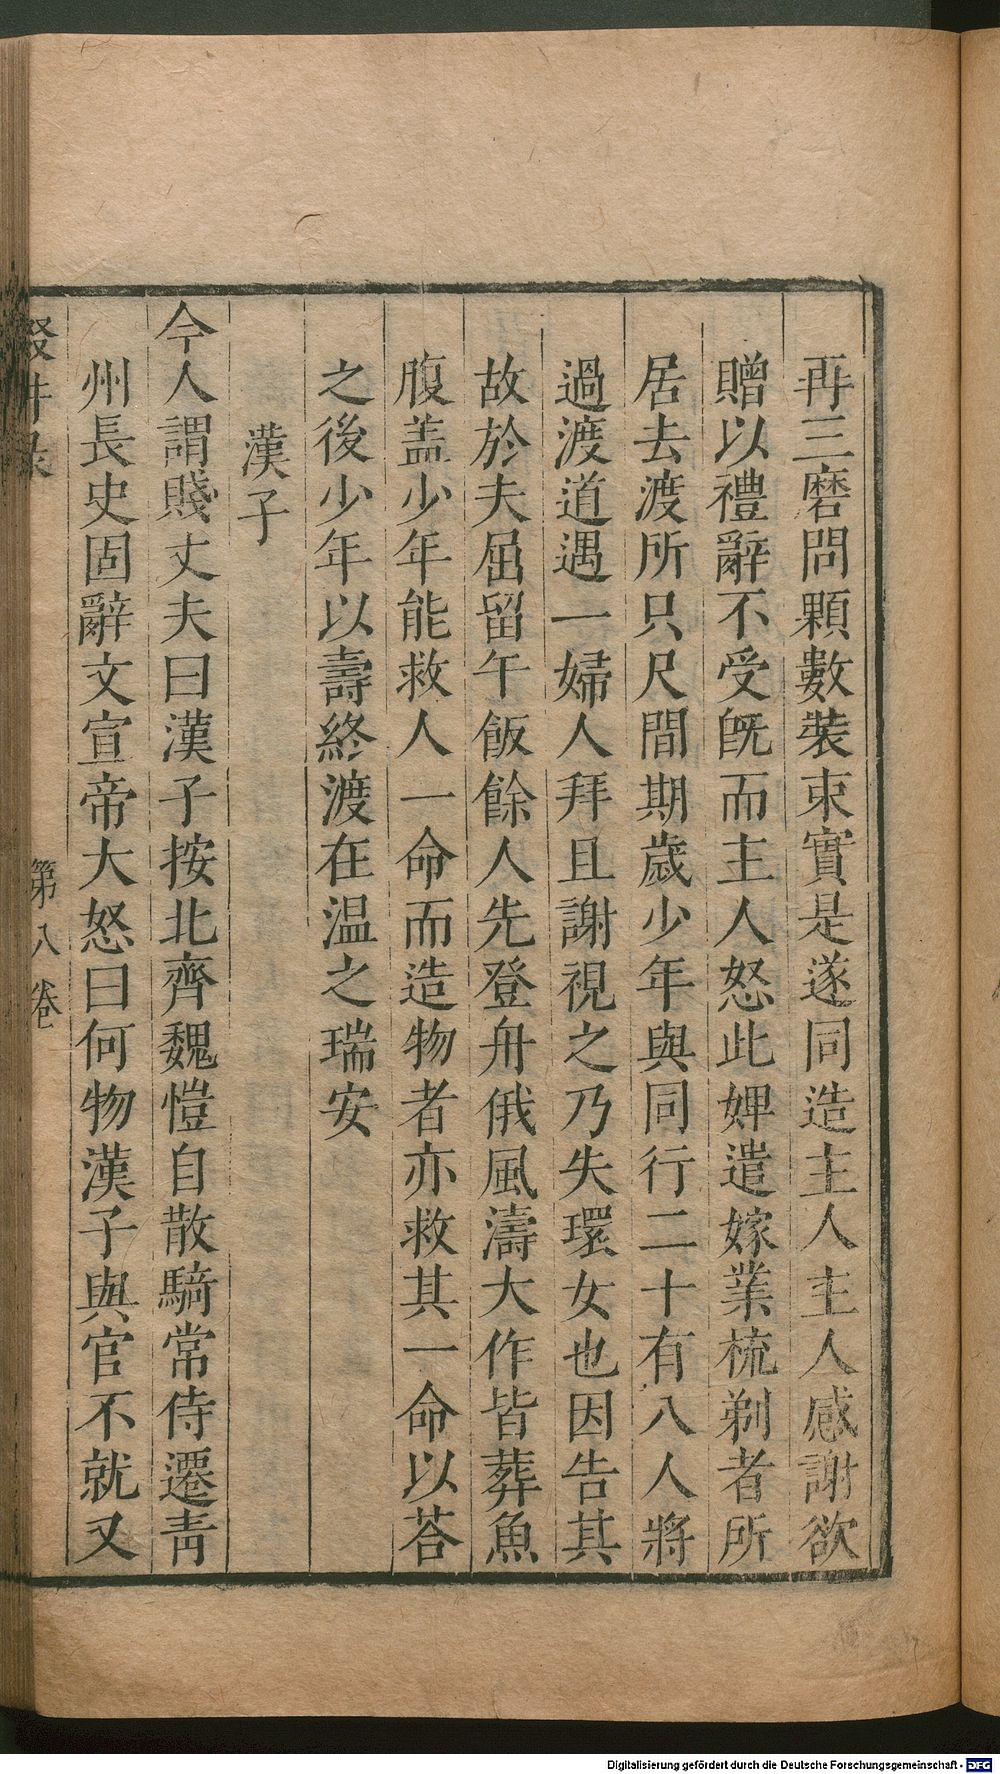 再三磨問顆數裝束實是遂同造主人主人感謝欲
贈以禮辭不受既而主人怒此婢遣嫁業梳剃者所
居去渡所只尺間期歲少年與同行二十有八人將
過渡道遇一婦人拜且謝視之乃失環女也因告其
故於夫屈留午飯餘人先登舟俄風濤大作皆葬魚
腹盖少年能救人一命而造物者亦救其一命以荅
之後少年以壽終渡在温之瑞安
漢子
今人謂賤丈夫曰漢子按北齊魏愷自散騎常侍遷青
州長史固辭文宣帝大怒曰何物漢子與官不就又
第八卷
Digitalisierung gefördert durch die Deutsche Forschungsgemeinschaft - DFG